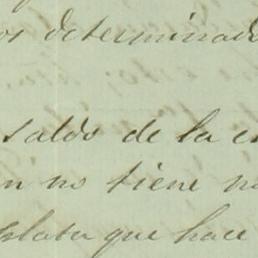 os determinado
saldo de la c
n no tiene n
que hace